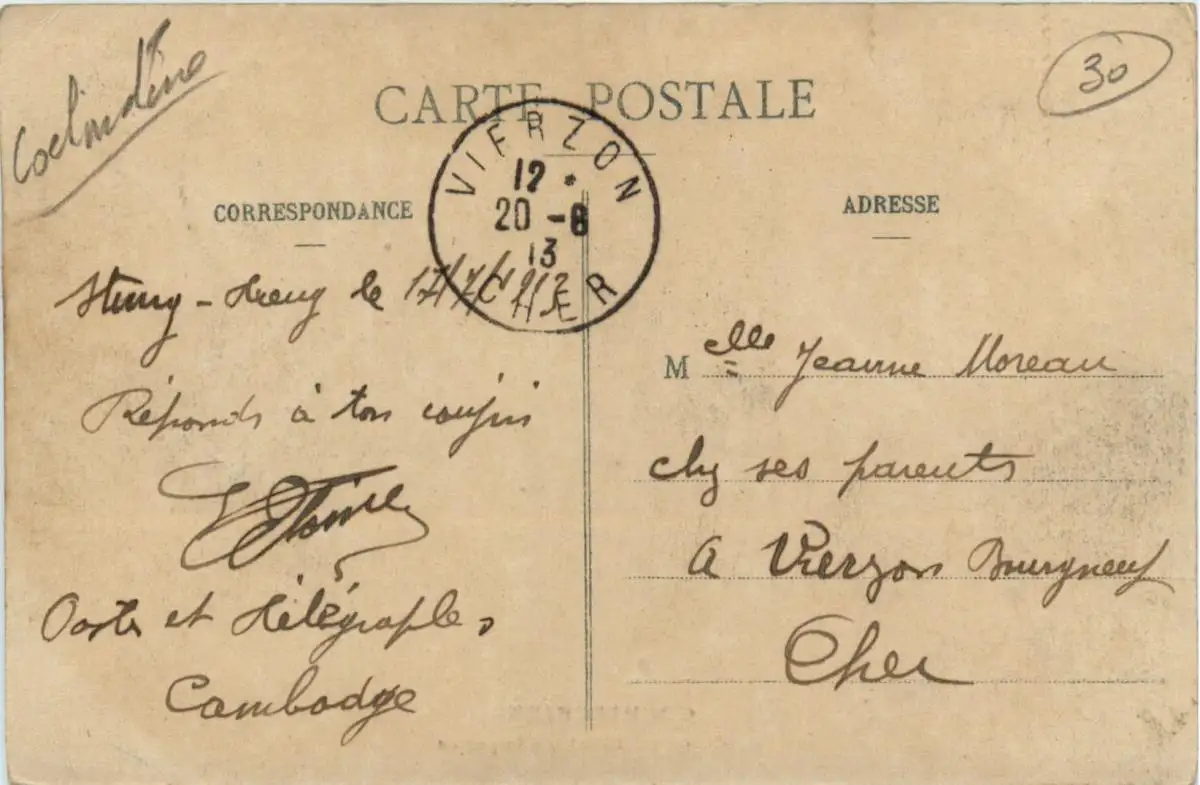 30
CARTE POSTALE
VIERZON
12 *
20 - 8
13
CHER
CORRESPONDANCE
ADRESSE
Stung-Treng le 17/7/1913
Réponds à ton cousin
Postes et Télégraphes
Cambodge
M elle Jeanne Moreau
chez ses parents
A Vierzon Bourgneuf
Cher